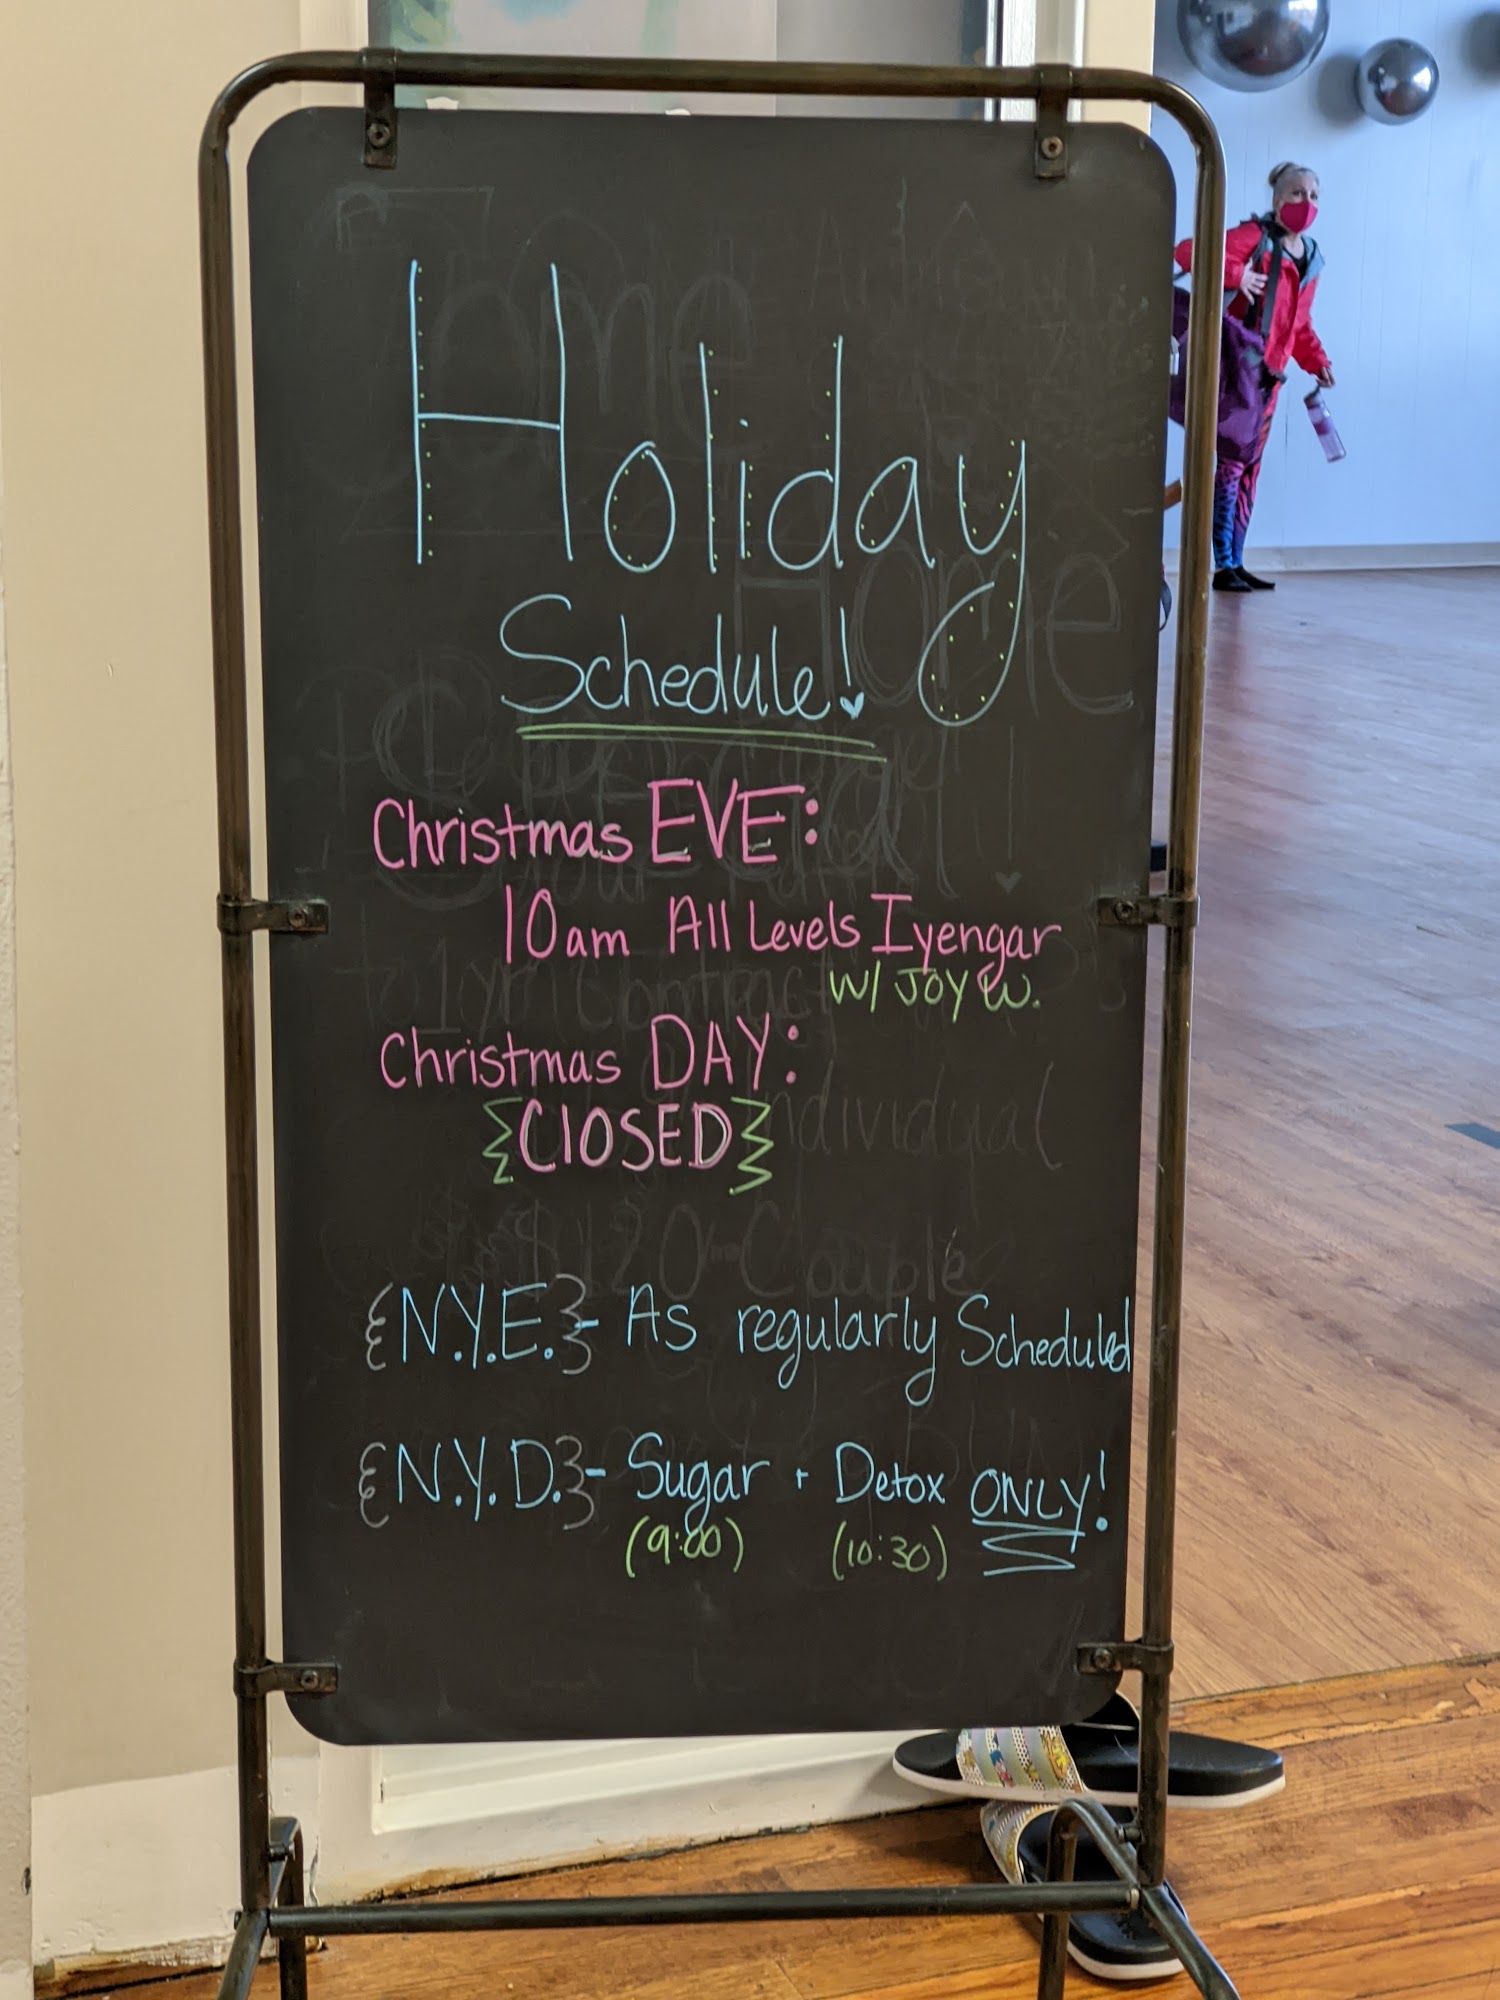 Holiday
Schedule!
Christmas EVE:
10am All Levels Iyengar
W/ JOY W.
Christmas DAY:
ClOSED
N.Y.E. - As regularly Scheduled
N.Y.D. - Sugar + Detox ONLY!
(9:00) (10:30)